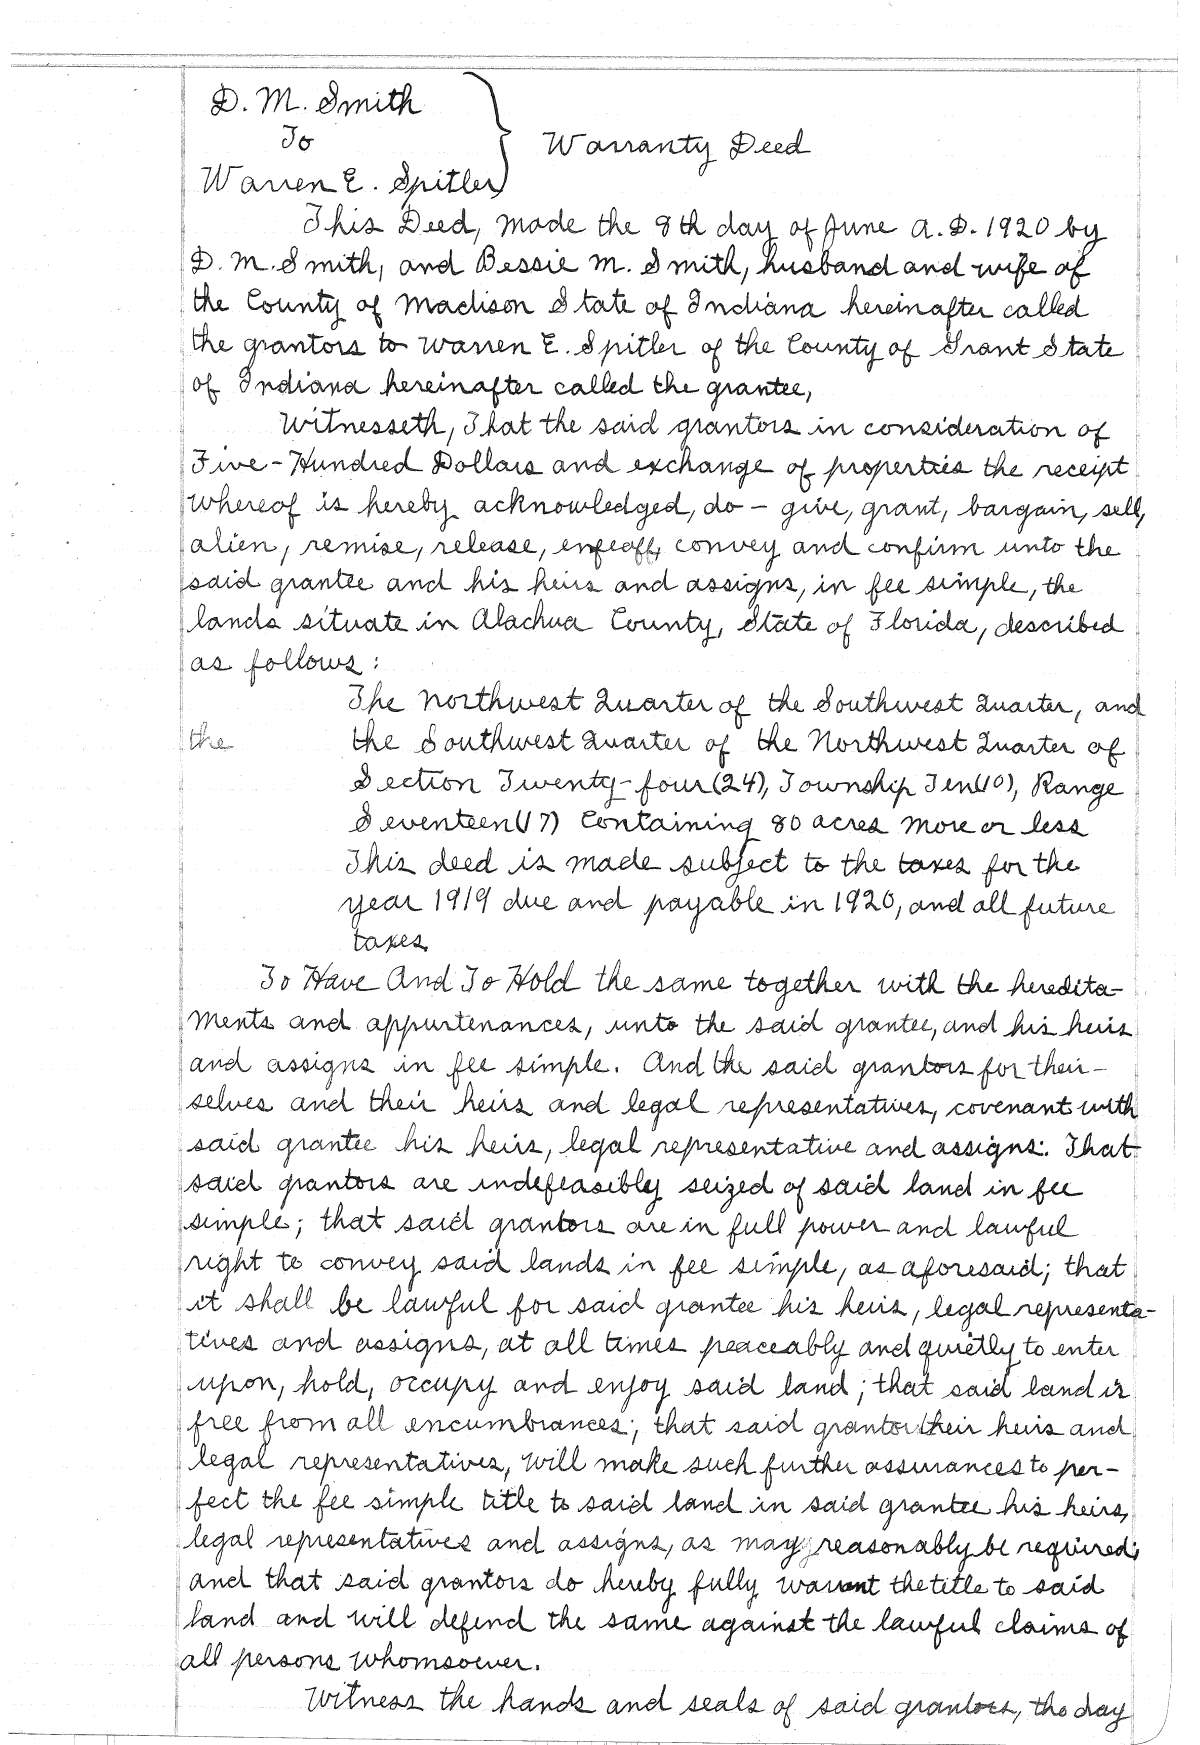 D. M. Smith
To
Warren E. Spitler
Warranty Deed
This Deed, made the 8th day of June A.D. 1920 by
D. M. Smith, and Bessie M. Smith, husband and wife of
the County of Madison State of Indiana hereinafter called
the grantors to Warren E. Spitler of the County of Grant State
of Indiana hereinafter called the grantee,
Witnesseth, That the said grantors in consideration of
Five-Hundred Dollars and exchange of properties the receipt
whereof is hereby acknowledged, do - give, grant, bargain, sell,
alien, remise, release, enfeoff, convey and confirm unto the
said grantee and his heirs and assigns, in fee simple, the
lands situate in Alachua County, State of Florida, described
as follows:
The Northwest Quarter of the Southwest Quarter, and
the
the Southwest Quarter of the Northwest Quarter of
Section Twenty-four(24), Township Ten(10), Range
Seventeen(17) Containing 80 acres more or less
This deed is made subject to the taxes for the
year 1919 due and payable in 1920, and all future
taxes.
To Have And To Hold the same together with the heredita-
ments and appurtenances, unto the said grantee, and his heirs
and assigns in fee simple. And the said grantors for their-
selves and their heirs and legal representatives, covenant with
said grantee his heirs, legal representative and assigns: That
said grantors are indefeasibly seized of said land in fee
simple; that said grantors are in full power and lawful
right to convey said lands in fee simple, as aforesaid; that
it shall be lawful for said grantee his heirs, legal representa-
tives and assigns, at all times peaceably and quietly to enter
upon, hold, occupy and enjoy said land; that said land is
free from all encumbrances; that said grantor their heirs and
legal representatives, will make such further assurances to per-
fect the fee simple title to said land in said grantee his heirs,
legal representatives and assigns, as may reasonably be required;
and that said grantors do hereby fully warrant the title to said
land and will defend the same against the lawful claims of
all persons whomsoever.
Witness the hands and seals of said grantors, the day